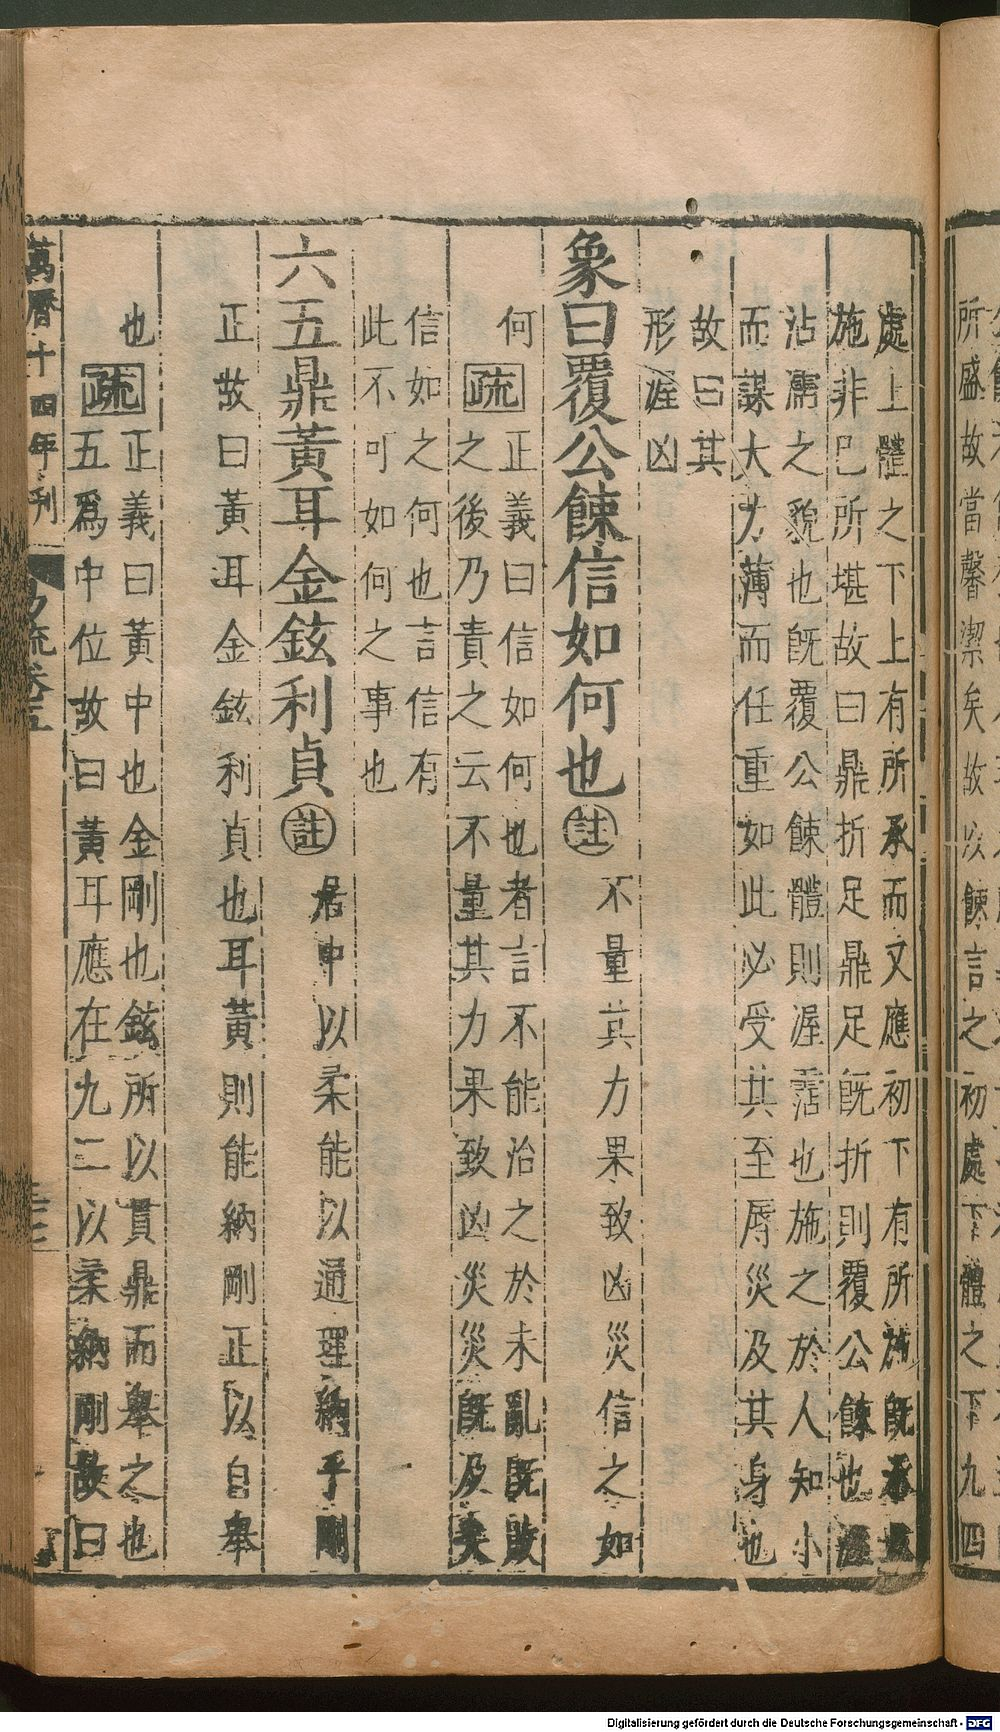 所盛故當馨潔矣故以餗言之初處下體之下九四
處上體之下上有所承而又應初下有所施既承且
施非巳所堪故曰鼎折足鼎足既折則覆公餗也渥
沾濡之貌也既覆公餗體則渥霑也施之於人知小
而謀大力薄而任重如此必受其至辱災及其身也
故曰其
形渥凶
象曰覆公餗信如何也註不量其力果致凶災信之如
何疏正義曰信如何也者言不能治之於未亂既敗
之後乃責之云不量其力果致凶災災既及矣
信如之何也言信有
此不可如何之事也
六五鼎黃耳金鉉利貞註居中以柔能以通理納乎剛
正故曰黃耳金鉉利貞也耳黃則能納剛正以自舉
也疏正義曰黃中也金剛也鉉所以貫鼎而舉之也
五爲中位故曰黃耳應在九二以柔納剛故曰
萬曆十四年刊
易疏卷五
Digitalisierung gefördert durch die Deutsche Forschungsgemeinschaft - DFG